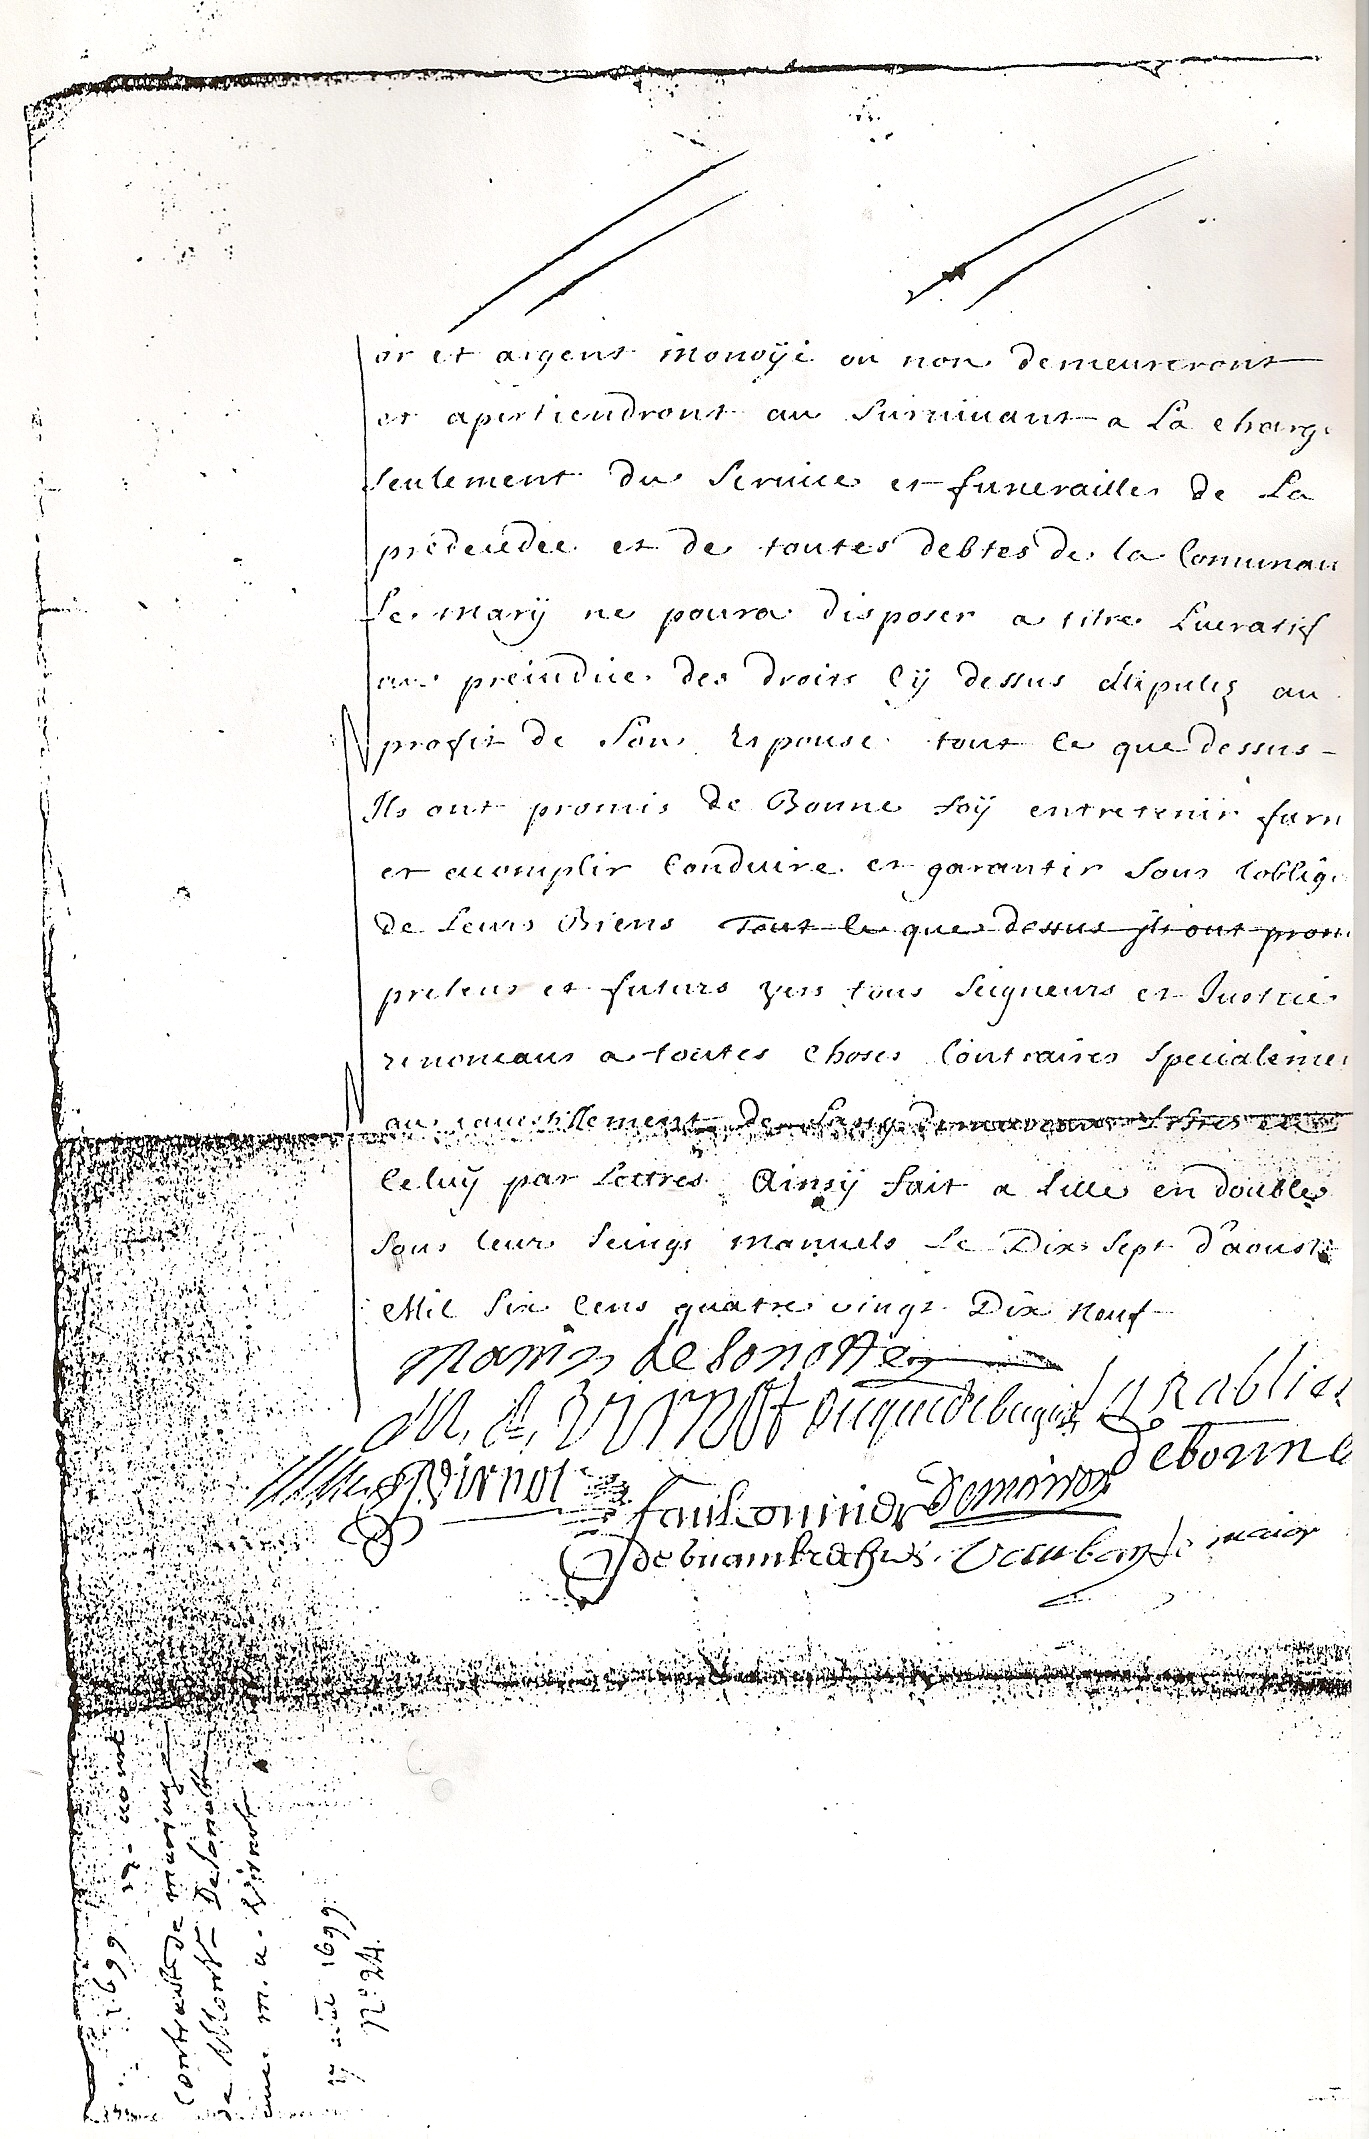 or et argent monoÿé ou non demeureront
et apertiendront au survivant a La charg
seulement du service et funerailles de La
predecedee et de toutes debtes de la Communau
Le marÿ ne poura disposer a titre Lucratif
au preiudice des droits Cÿ dessus stipulez au
profit de son Espouse tout Ce que dessus
Ils ont promis de Bonne foÿ entretenir furn
et acomplir Conduire et garantir sous lobliga
de Leurs Biens Tout Ce que dessus ils ont prom
presens et futurs vers tous seigneurs et Justice
renonceans a toutes choses Contraires specialeme
au
Celuÿ par Lettres Ainsÿ fait a Lille en double
sous leur seings manuels Le Dix sept d'aoust
Mil six Cens quatre vingt Dix neuf
Marin de Sonotte
M. A. Virnot Duquedebugin La Rablier
Virnot Debonne
faulconnier Demoiron
Vauban Le maior
1699 17 aoust
Contract de mariage
de Monsr Desonott
avec m. a. Virnot
17 aout 1699
No 24.